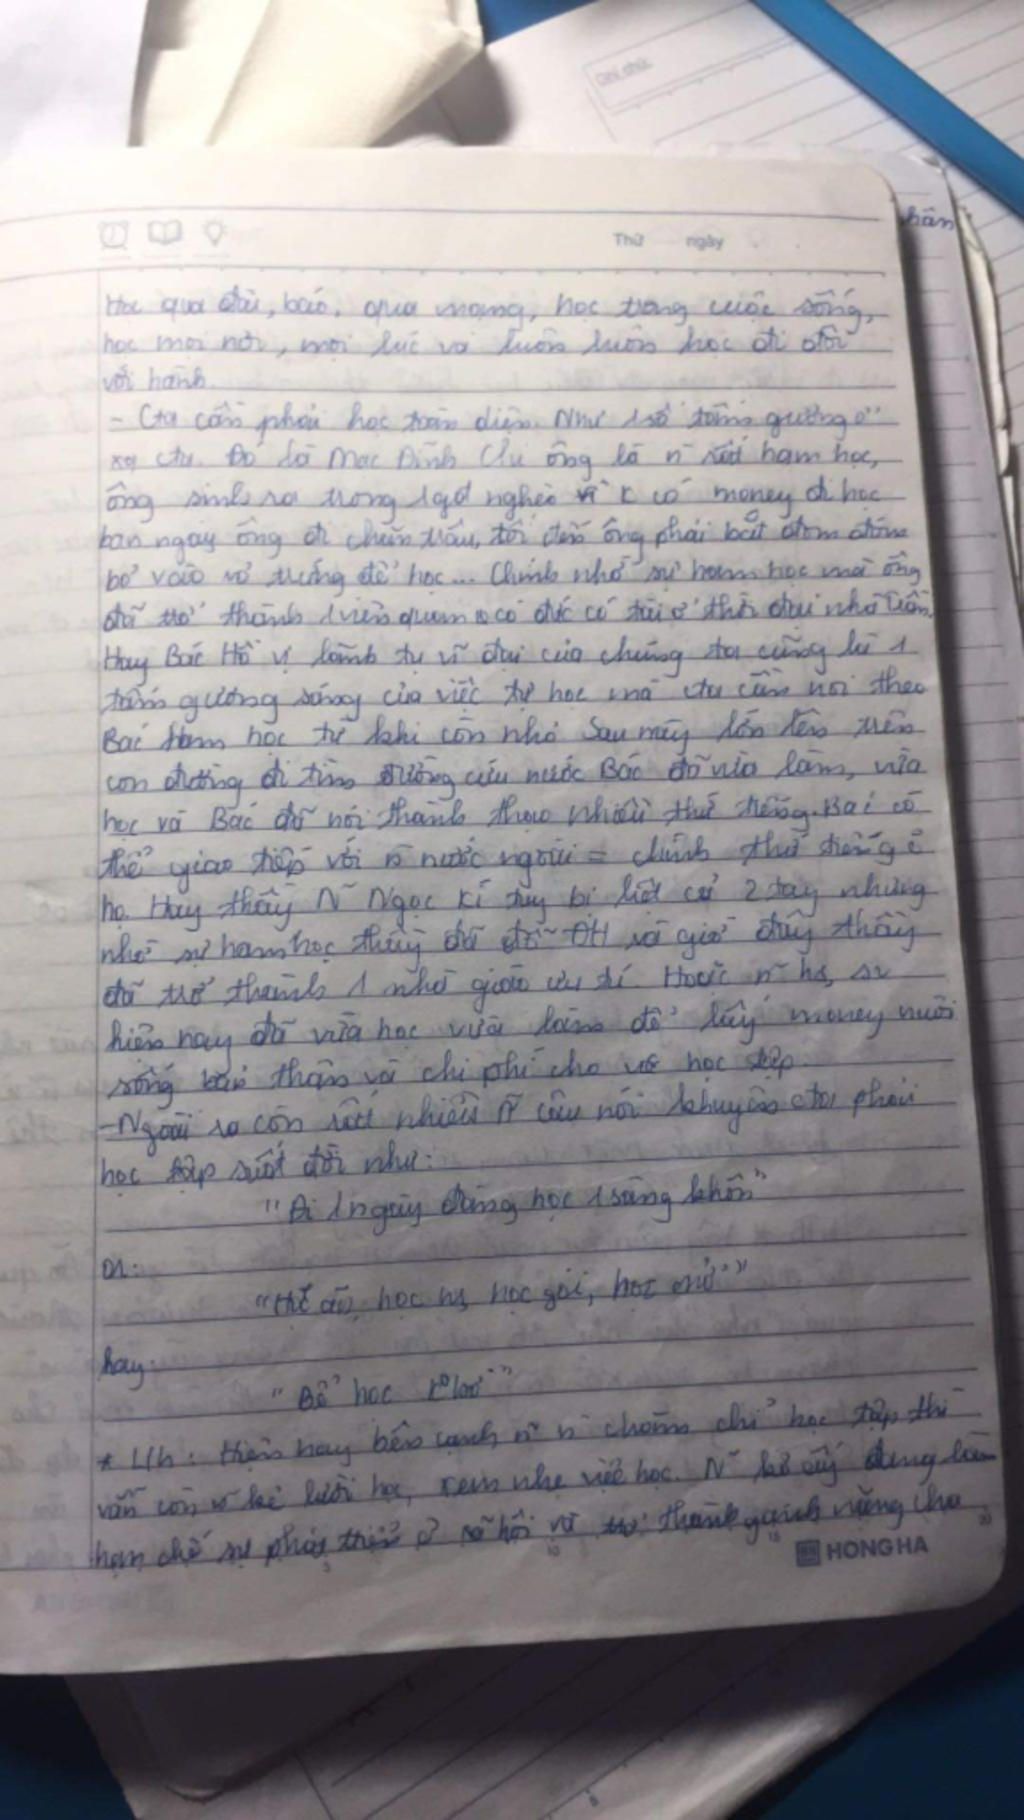 Ghi chú:
hân
Thứ ngày
Học qua đài, báo, qua mạng, học trong cuộc sống,
học mọi nơi, mọi lúc và luôn luôn học đi đôi
với hành.
- Cta cần phải học toàn diện. Như 1 số tấm gương
xq cta. Đó là Mạc Đĩnh Chi ông là n rất ham học,
ông sinh ra trong 1 gđ nghèo vì k có money đi học
ban ngày ông đi chăn trâu, tối đến ông phải bắt đom đóm
bỏ vào vỏ trứng để học... Chính nhờ sự ham học mà ông
đã trở thành 1 viên quan có đức có tài ở thời đại nhà Trần.
Hay Bác Hồ vị lãnh tụ vĩ đại của chúng ta cũng là 1
tấm gương sáng của việc tự học mà cta cần noi theo
Bác ham học từ khi còn nhỏ sau này lớn lên trên
con đường đi tìm đường cứu nước Bác đã vừa làm, vừa
học và Bác đã nói thành thạo nhiều thứ tiếng. Bác có
thể giao tiếp với n nước ngoài = chính thứ tiếng
họ. Hay thầy N Ngọc Kí tuy bị liệt cả 2 tay nhưng
nhờ sự ham học thầy đã đỗ ĐH và giờ đây thầy
đã trở thành 1 nhà giáo ưu tú. Hoặc n~ hs, sv
hiện nay đã vừa học vừa làm để lấy money nuôi
sống bản thân và chi phí cho học tập.
- Ngoài ra còn rất nhiều n~ câu nói khuyên cta phải
học tập suốt đời như:
"Đi 1 ngày đàng học 1 sàng khôn"
or:
"Học ăn, học nói, học gói, học mở"
hay:
"Bể học"
* Lh: Hiện nay bên cạnh n~ n chăm chỉ học tập thì
vẫn còn n~ kẻ lười học, xem nhẹ việc học. N~ kẻ ấy đang làm
hạn chế sự phát triển xã hội và thành gánh nặng cho
HONG HA